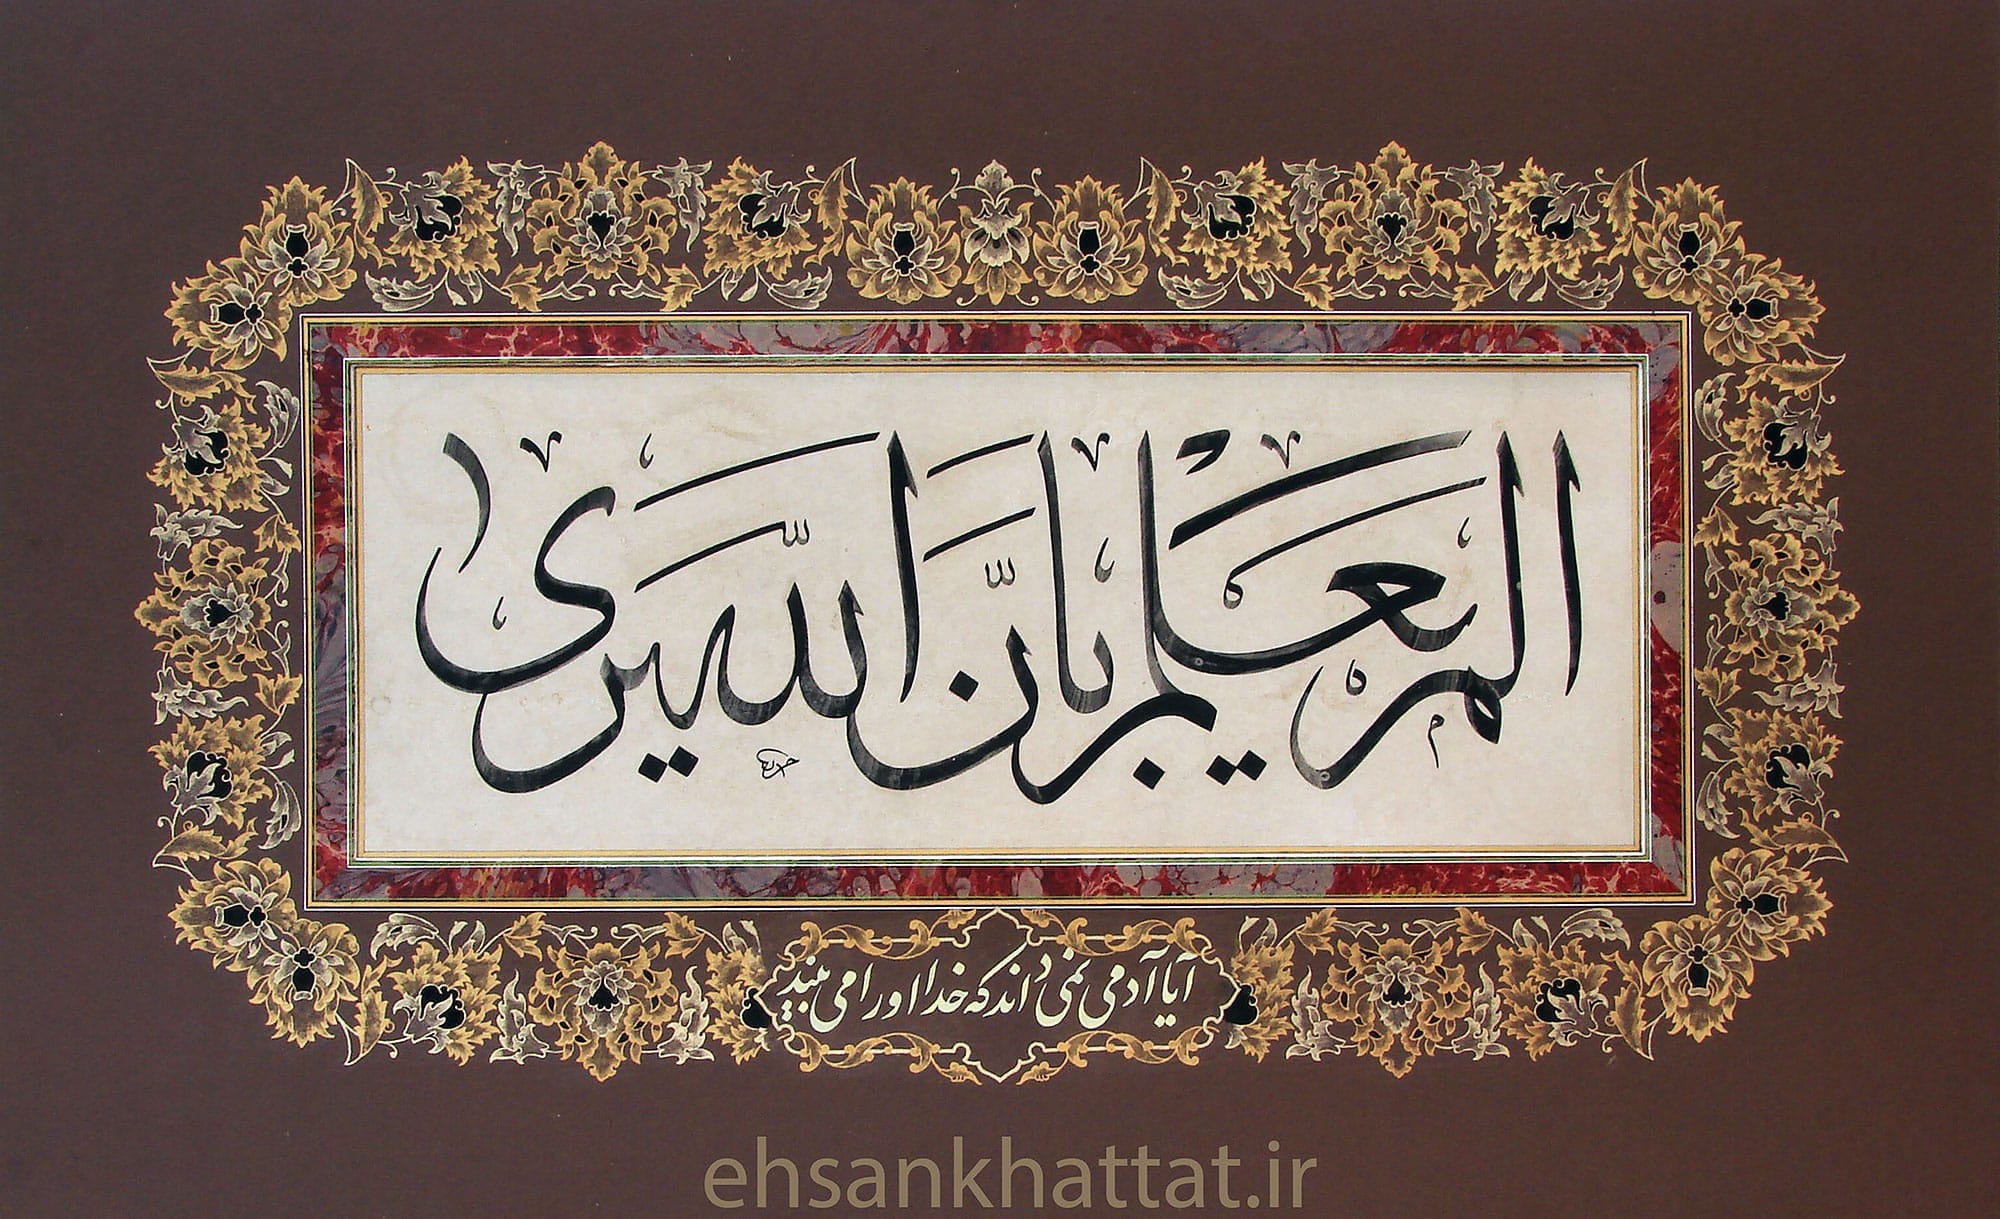 الم یعلم بانّ اللّه یری
آیا آدمی نمی داند که خدا او را می بیند
ehsankhattat.ir